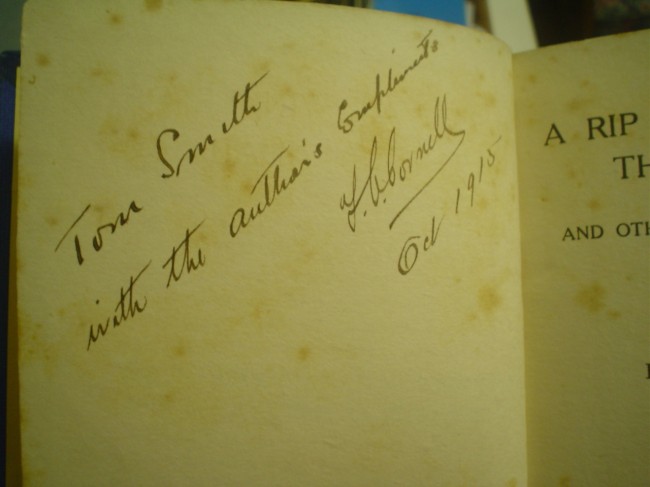 Tom Smith
with the author's Compliments
F.C. Cornell
Oct 1915
A RIP
TH
AND OTH